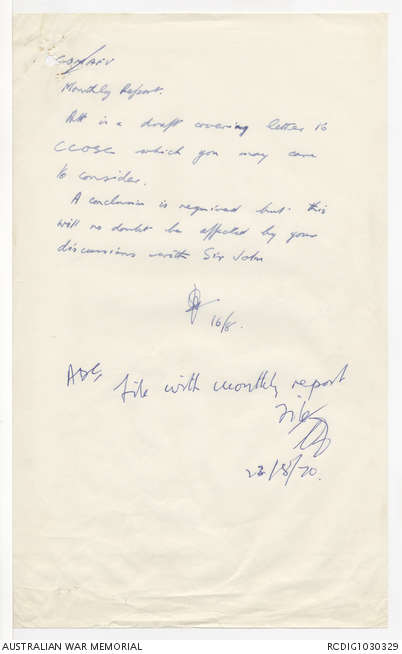 COMAFV
Monthly Report.
Att is a draft covering letter to
CCOSC which you may care
to consider.
A conclusion is required but this
will no doubt be affected by your
discussions with Sir John
16/8.
ADC
file with monthly report
file
22/8/70.
AUSTRALIAN WAR MEMORIAL
RCDIG1030329